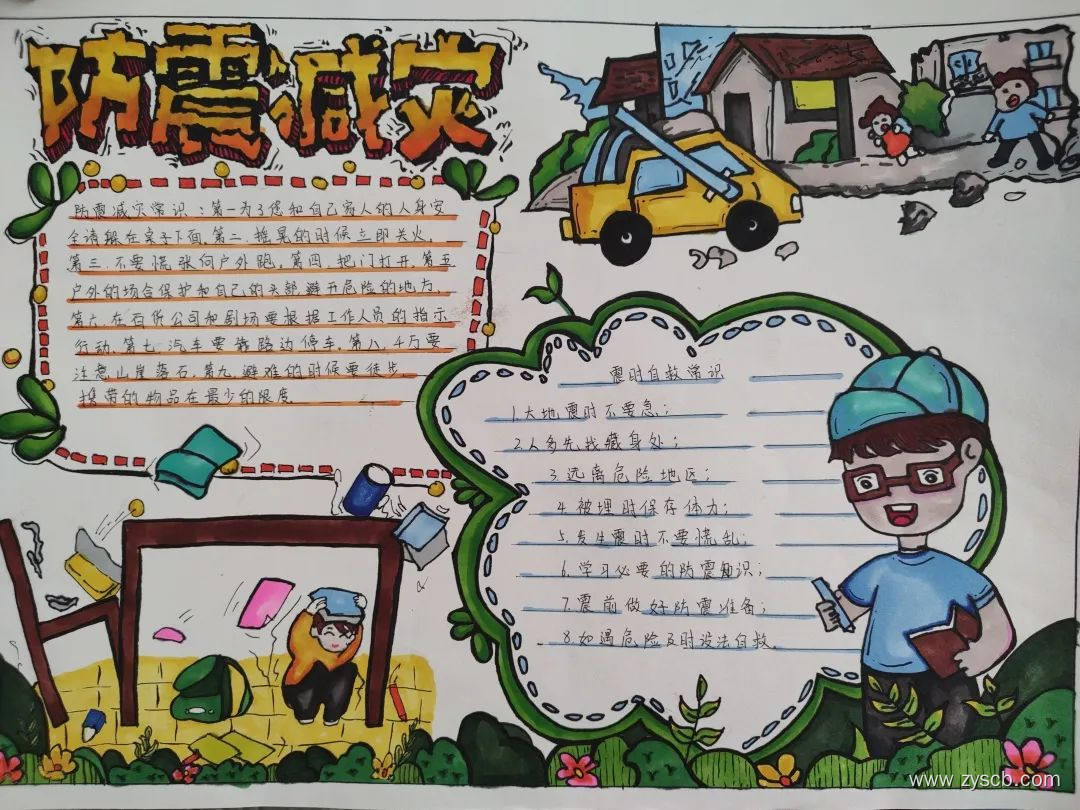 防震减灾
防震减灾常识：第一为了您和自己家人的人身安
全请躲在桌子下面.第二.摇晃的时候立即关火，
第三.不要慌张向户外跑，第四.把门打开.第五
户外的场合保护和自己的头部避开危险的地方，
第六.在百货公司和剧场要根据工作人员的指示
行动.第七.汽车要靠路边停车.第八.千万要
注意山崖落石.第九避难的时候要徒步，
携带的物品在最少的限度.
震时自救常识
1.大地震时不要急；
2.人多先找藏身处；
3.远离危险地区；
4.被埋时保存体力；
5.发生震时不要慌乱；
6.学习必要的防震知识；
7.震前做好防震准备；
8.如遇危险及时设法自救.
www.zyscb.com